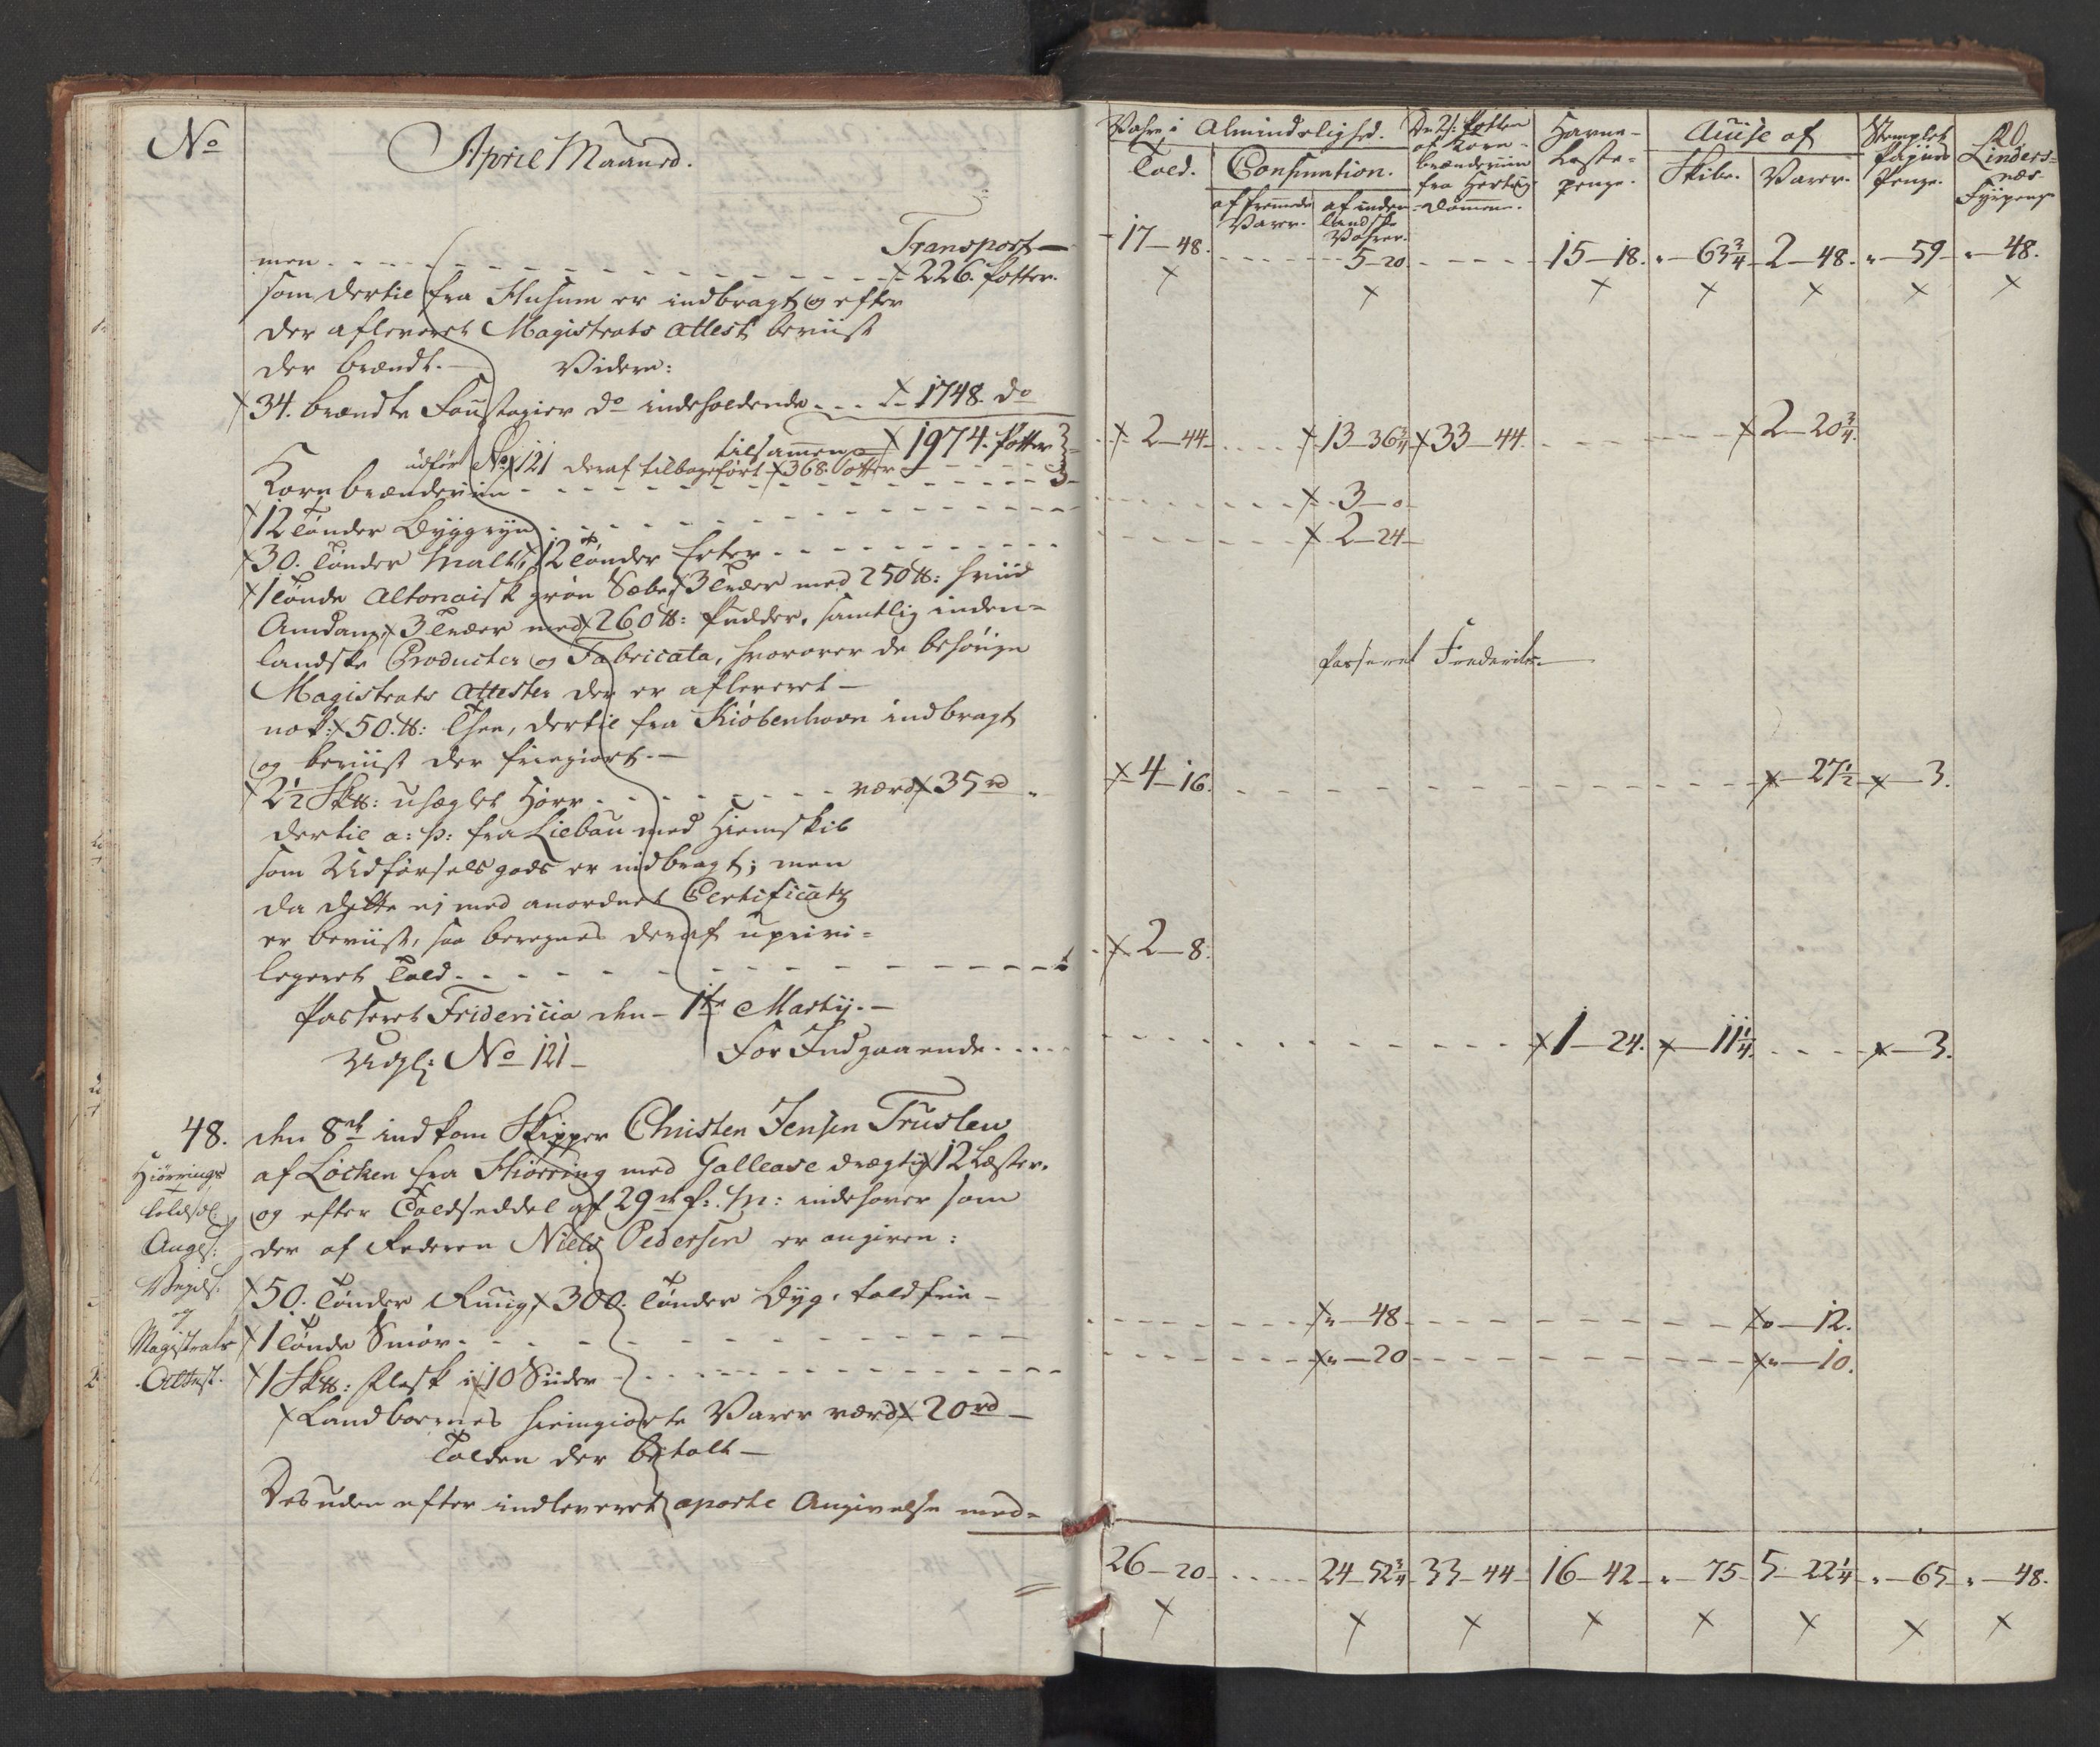 No
April Maaned.
Transport —
men - - - - 226. Potter.
som dertil fra Husum er indbragt og efter
der afleveret Magistrats Attest beviist
der brændt. — Videre:
34. brændte Foustagier do indeholdende - - - 1748. do
tilsammen 1974. Potter
udført No 121 deraf tilbageført 368 Potter
Korn brændeviin - - - -
12 Tønder Byggryn - - - -
30. Tønder Malt, 12 Tønder Erter - - - -
1 Tønde Altonaisk grøn Sæbe, 3 Træer med 250 ℔: hviid
Amdam, 3 Træer med 260 ℔: Pudder, samtlig inden=
landske Producter og Fabricata, hvorover de behørige
Magistrats Attester der er afleveret —
nok: 50. ℔: Thee, dertil fra Kiøbenhavn indbragt
og beviist der friegiort. —
2½ Sk℔: uheglet Hørr - - - - værd 35 rd „
dertil a: p: fra Liebau med Hiemskib
som Udførselsgods er indbragt; men
da dette ej med anordnet Certificat
er beviist, saa beregnes deraf uprivi=
legeret Told - - - -
Passeret Fridericia den - 1te Martij. —
Udgl: No 121 — For Indgaaende - - - -
48. den 8de indkom Skipper Christen Jensen Trustew
af Løcken fra Hiørring med Gallease drægtig 12 Læster.
og efter Toldseddel af 29de f: M: indehaver som
der af Rederen Niels Pedersen er angiven:
Hiørrings
Toldsedl:
Angl:
og
Magistrats
Attest.
50. Tønder Ruug, 300. Tønder Byg, toldfrie —
1 Tønde Smør - - - -
1 Sk℔: Flesk i 10 Siider - - - -
Landboernes hiemgiorte Varer værd 20 rd —
Tolden der betalt —
Desuden efter indleveret aparte Angivelse med=
Vahre i Almindelighed.
Told.
Consumtion.
af fremmede Varer.
af inden landske Vahrer.
De 2 s: Potten af Korn=brændeviin fra Hertug=dømmene.
Havne=Laste=penge.
Accise af
Skibe.
Varer.
Stemplet Papiirs Penge.
Linders=næs Fyrpenge
17—48. - - - - 5—20. - - - - 15—18. „—63¾ 2—48. „—59 „—48.
2—44 - - - - 13—36¾ 33—44. - - - - 2—20¾.
3—0
2—24
Passeret Fredericia
4—16. - - - - —27½ —3.
2—8.
1—24. —11¼. - - - - —3.
„—48 - - - - 0—12.
„—20 - - - - „—10.
26—20 - - - - 24—52¾ 33—44 16—42 „—75 5—22¼ „—65 „—48.